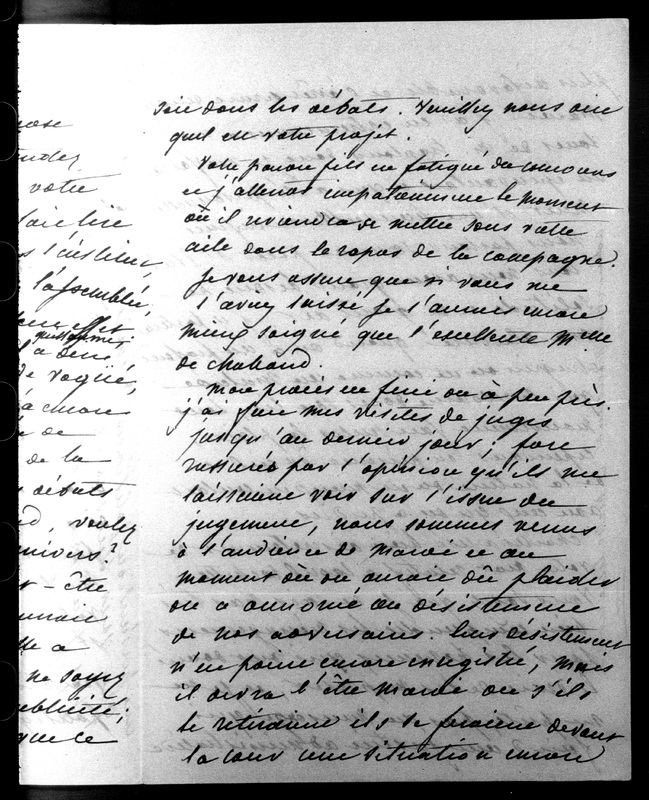 pose
votre
faire lire
l'assemblée,
a demi
de vogüé,
encore
de
de la
débats
voulez
univers?
être
a
ne soyez
publicité;
que ce
soir dans les débats. Veuillez nous dire
quel est votre projet.
Votre pauvre fils est fatigué du concours
et j'attends impatiemment le moment
où il reviendra se mettre sous votre
aile dans le repos de la campagne.
Je vous assure que si vous me
l'aviez laissé je l'aurais encore
mieux soigné que l'excellente Melle
de Chabaud
mon procès est fini ou à peu près.
j'ai fait mes visites de juges
jusqu'au dernier jour, fort
rassurés par l'opinion qu'ils me
laissaient voir sur l'issue du
jugement, nous sommes venus
à l'audience de mardi et au
moment où on aurait dû plaider
on a annoncé un désistement
de nos adversaires. Leur désistement
n'est point encore enregistré, mais
il devra l'être mardi ou s'ils
le retiraient ils se feraient devant
la cour une situation encore